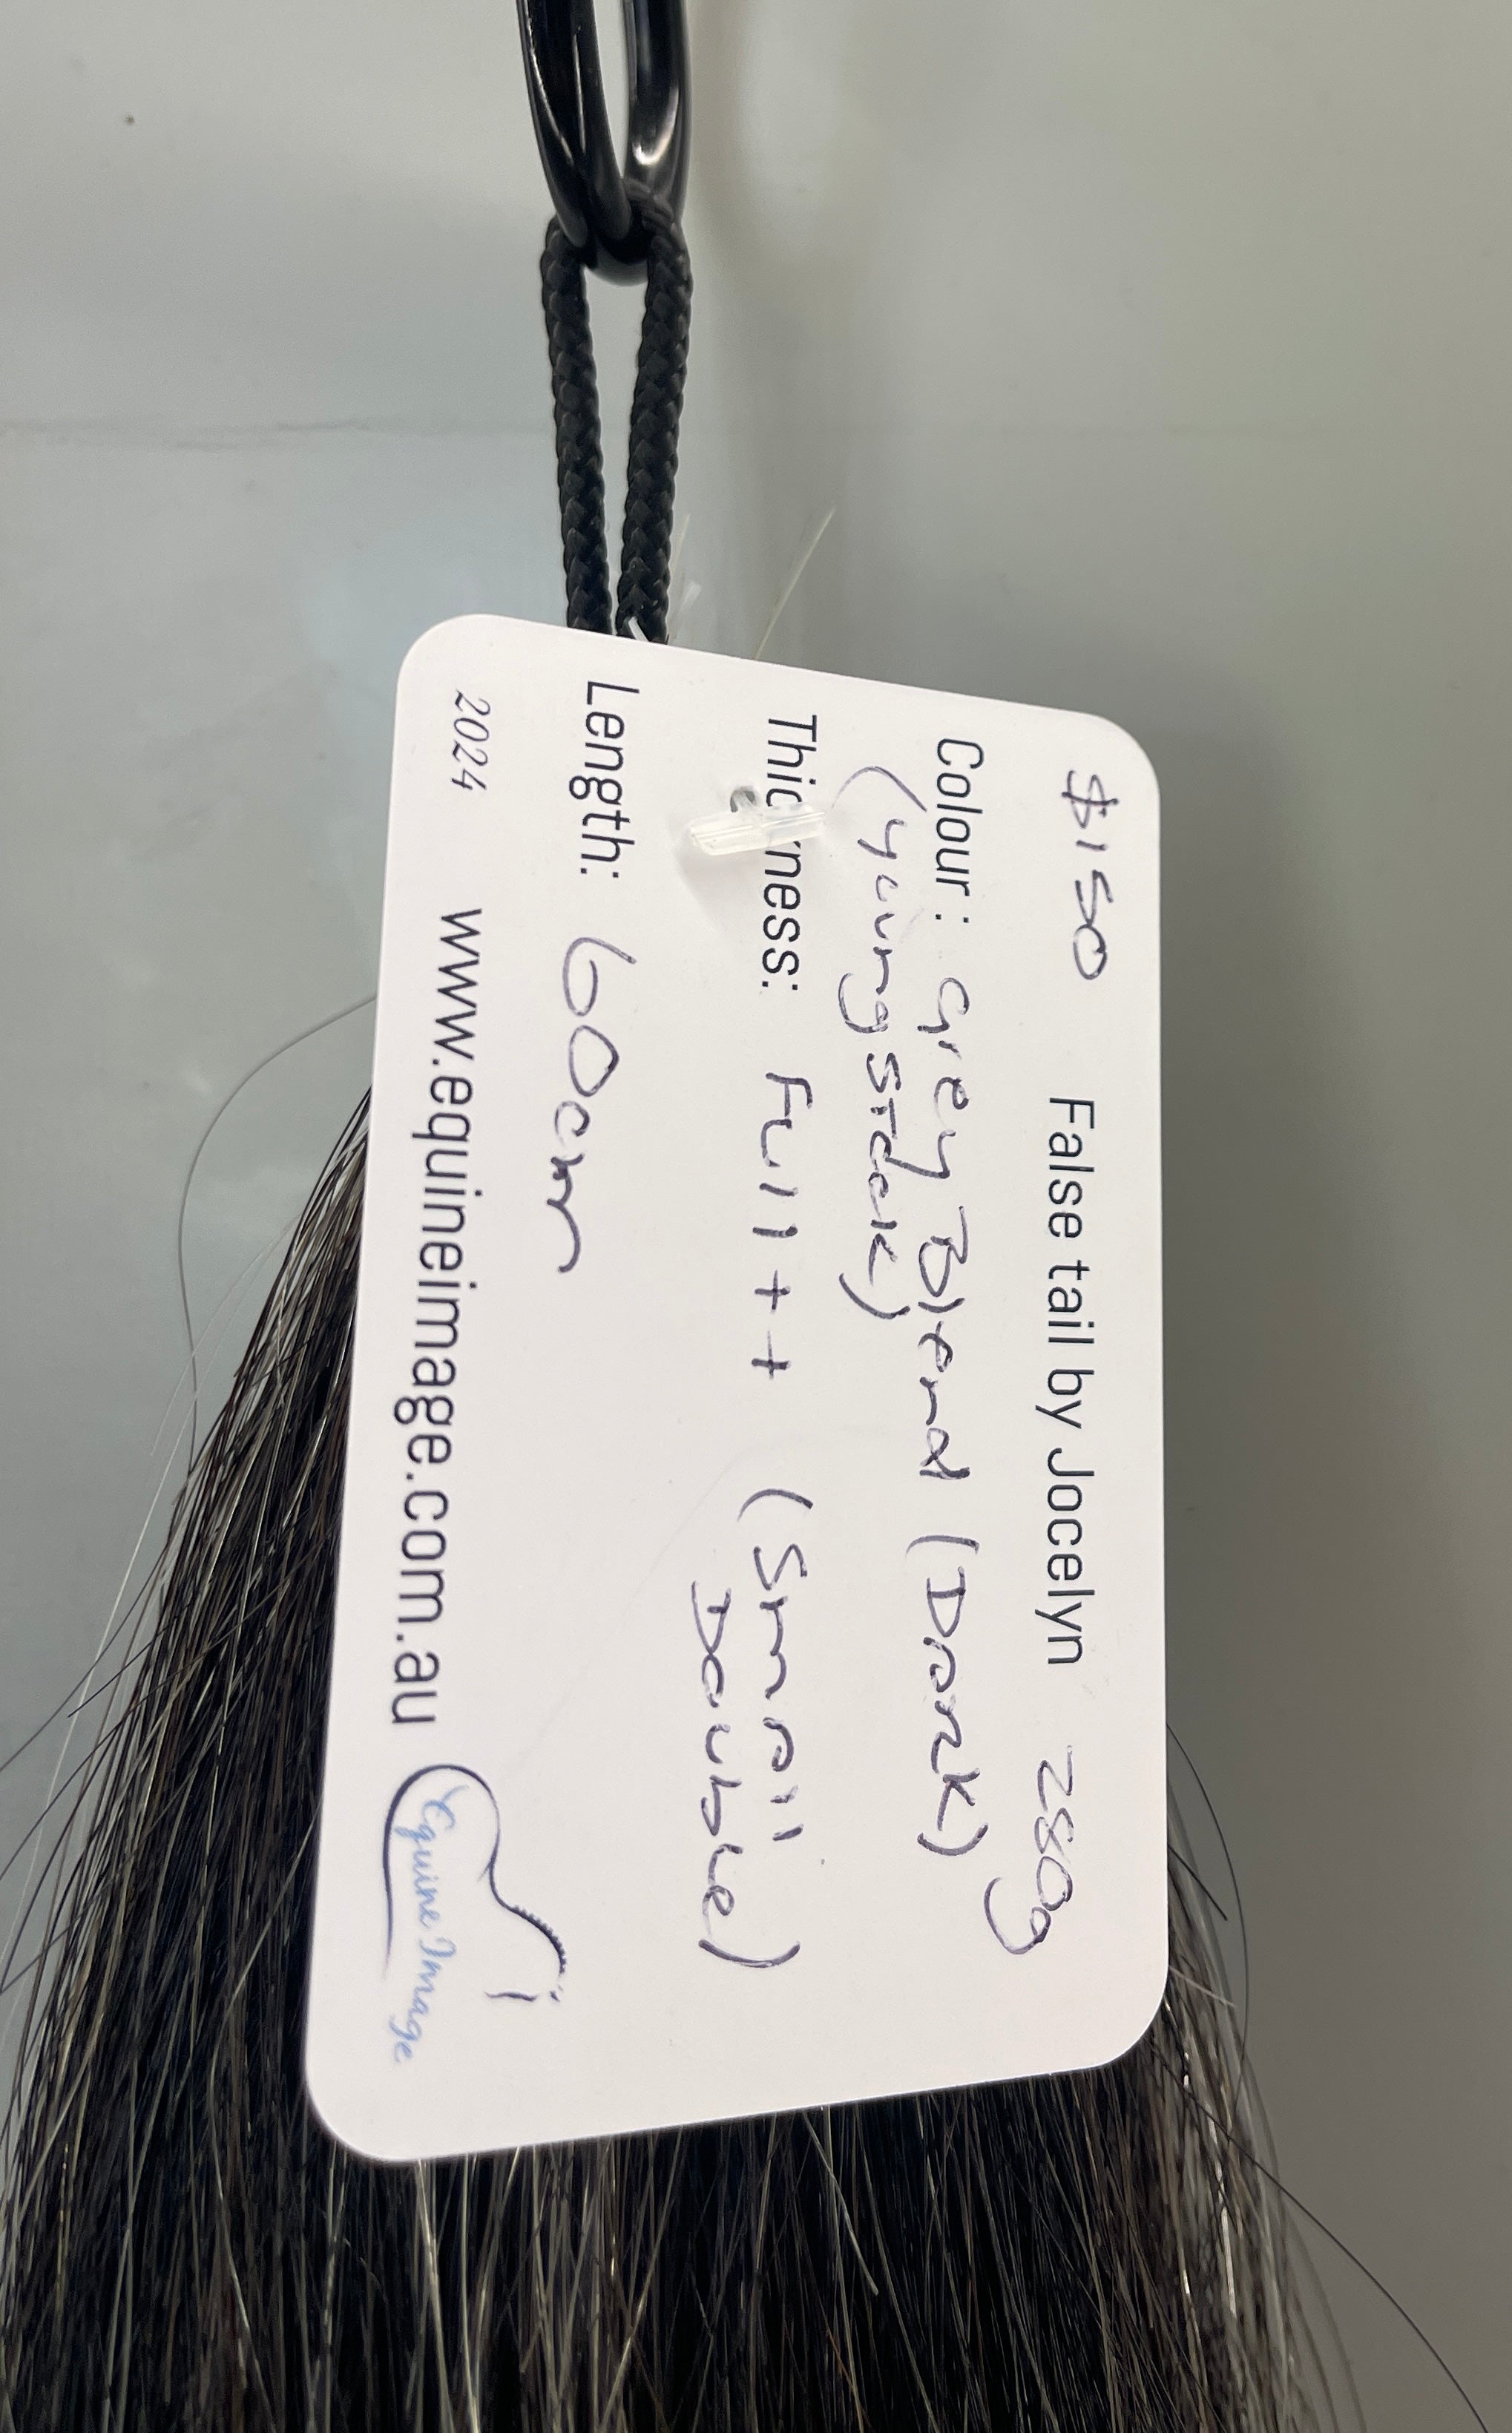 $150 False tail by Jocelyn 280g
Colour: Grey Blend (Dark)
(youngstock)
Thickness: Full ++ (Small
Double)
Length: 60cm
2024 www.equineimage.com.au
Equine Image